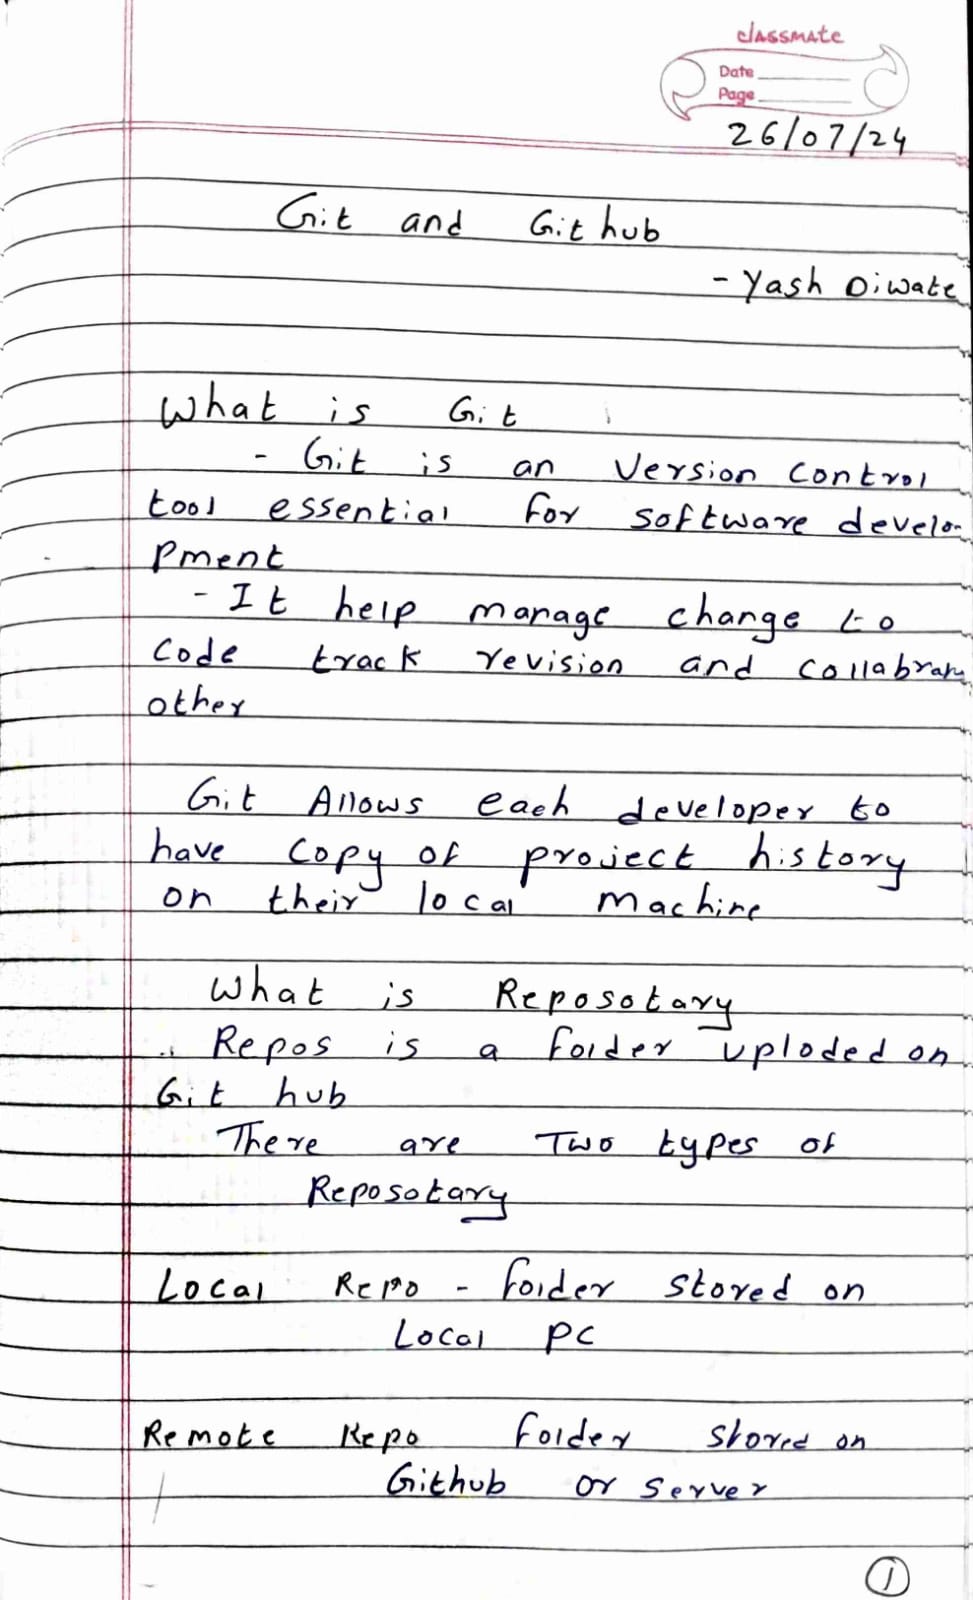 classmate
Date
Page
26/07/24
Git and Github
- Yash Diwate
What is Git
- Git is an Version control
tool essential for software develo-
pment
- It help manage change to
code track revision and
other
Git Allows each developer to
have copy of project history
on their local machine
What is Reposotary
Repos is a folder uploded on
Git hub
There are Two types of
Reposotary
Local Repo - folder stored on
Local PC
Remote Repo folder stored on
Github or server
1